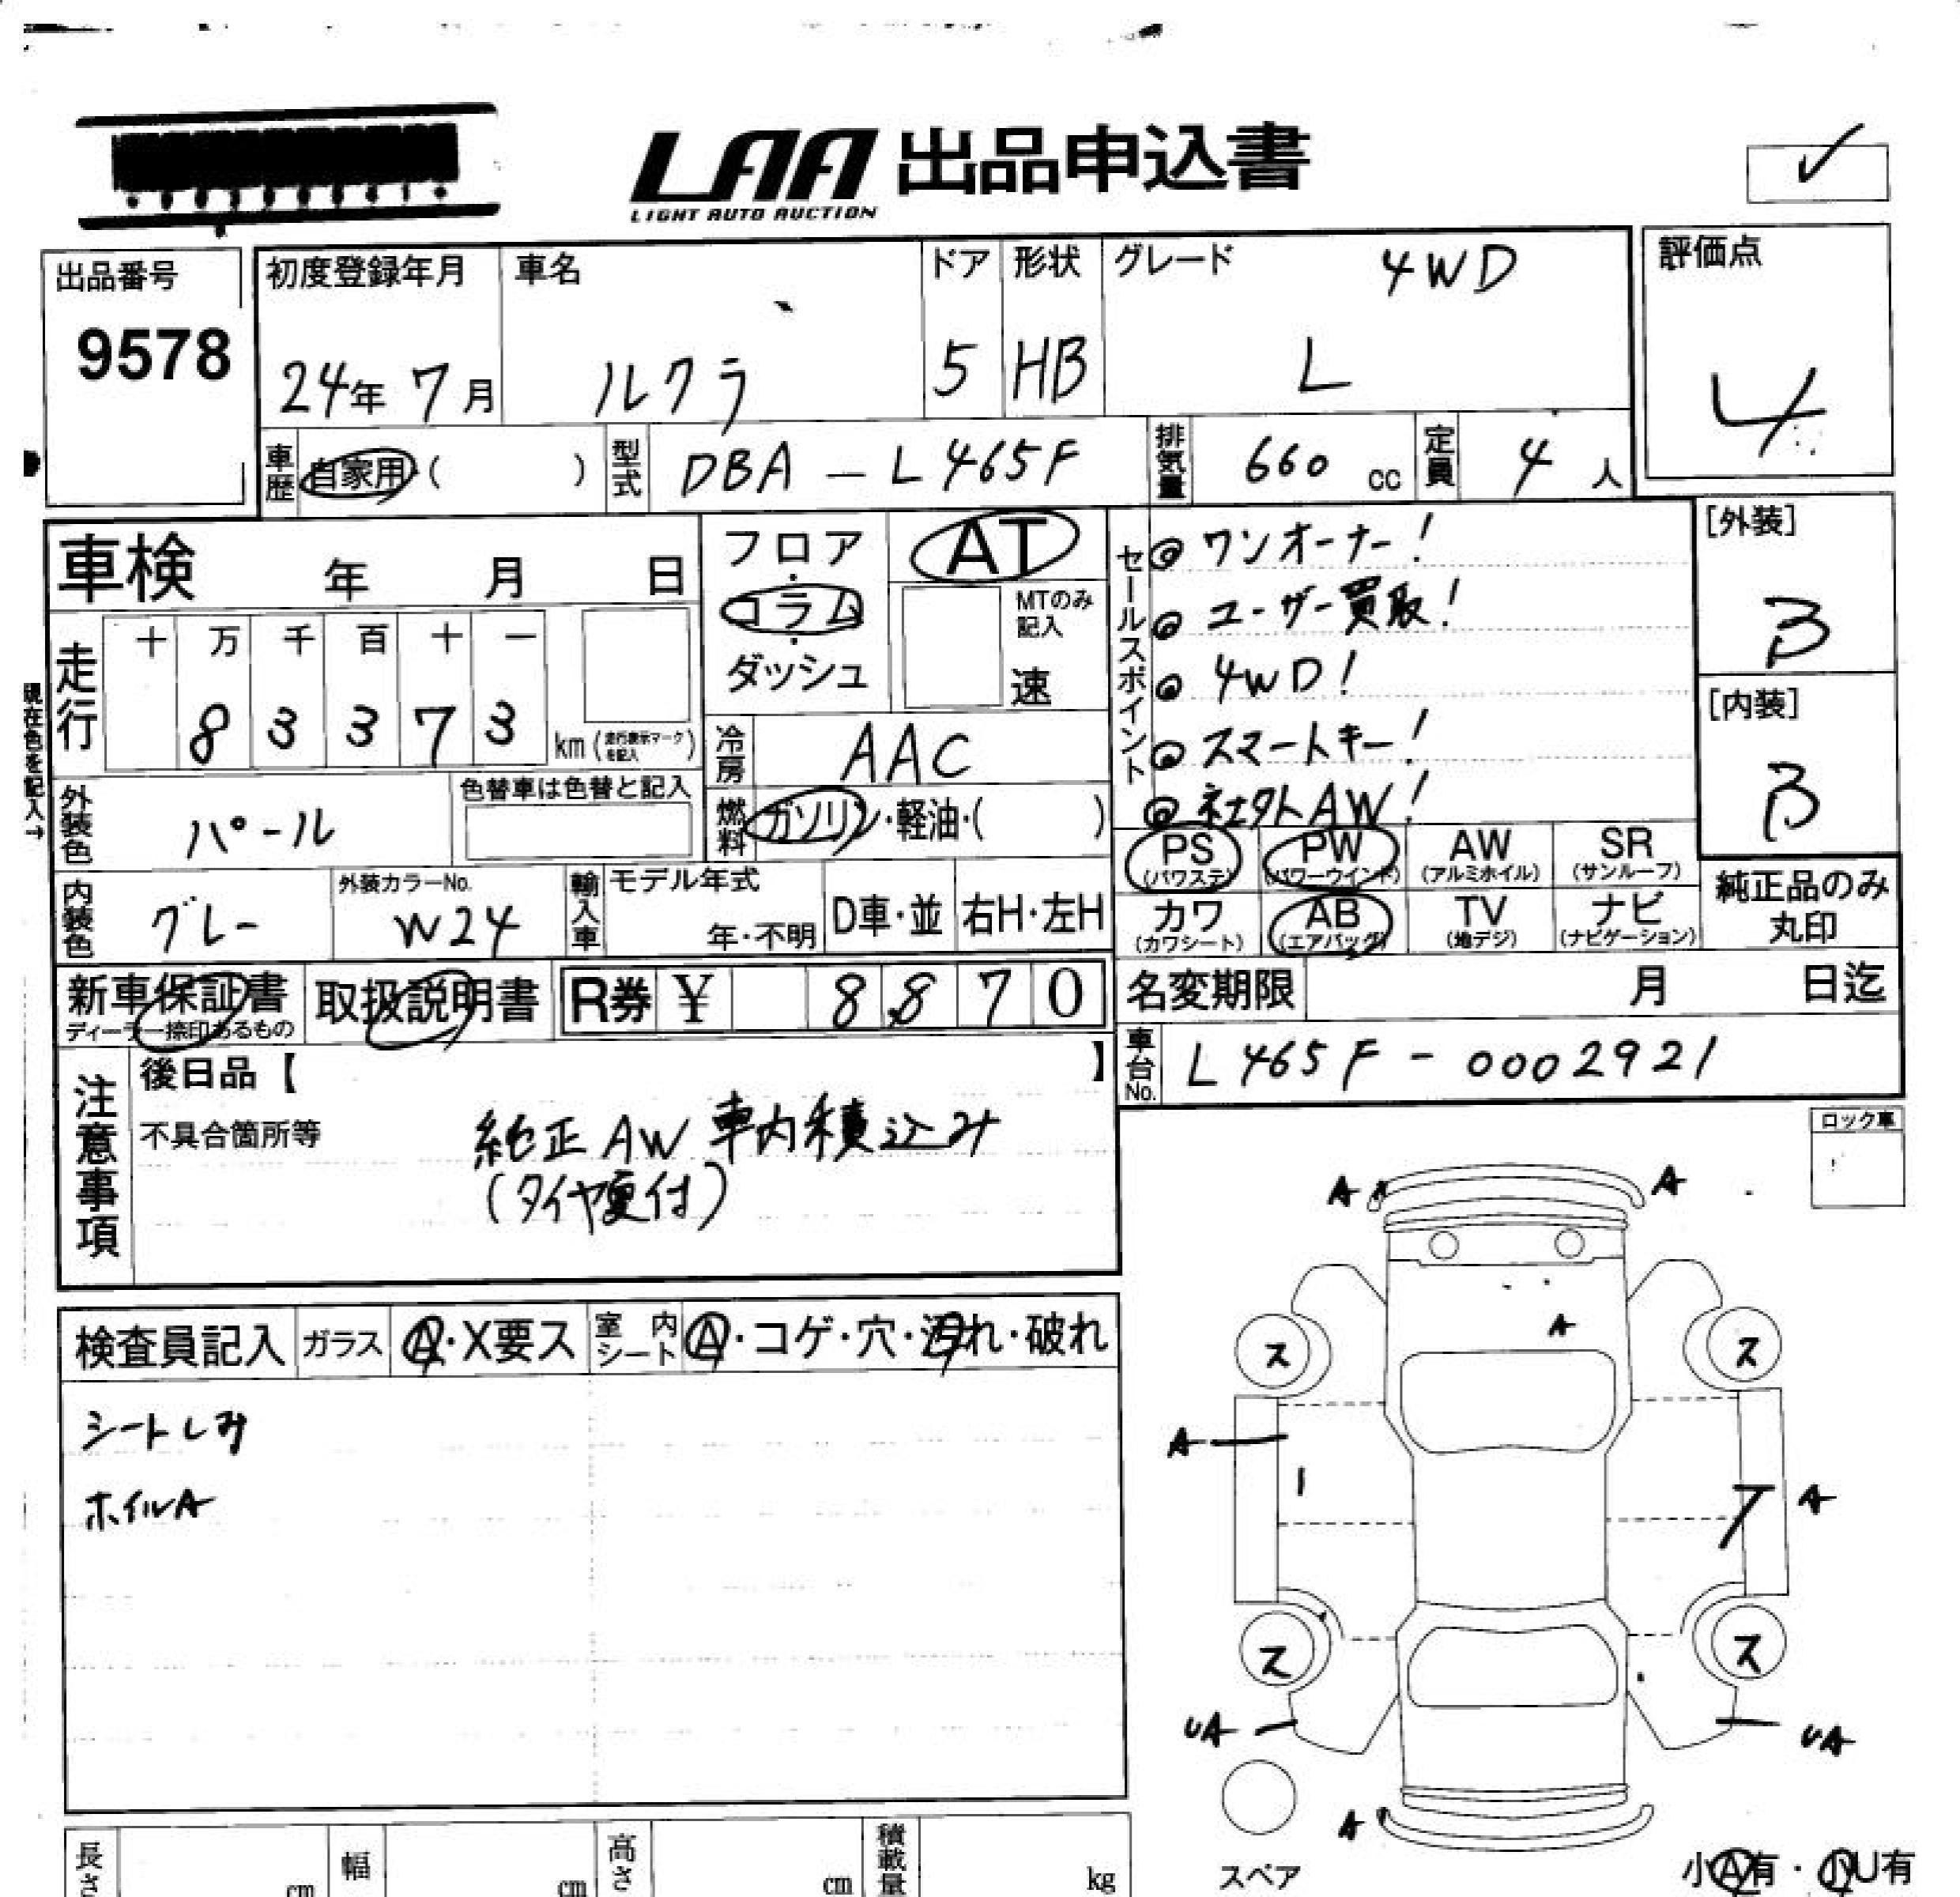 LAA 出品申込書
LIGHT AUTO AUCTION
出品番号
9578
初度登録年月
24年 7月
車名
ルクラ
ドア
5
形状
HB
グレード
4WD
L
評価点
4
車歴
自家用・( )
型式
DBA-L465F
排気量
660 cc
定員
4 人
車検 年 月 日
フロア・コラム・ダッシュ
AT
MTのみ記入
速
セールスポイント
@ ワンオーナー!
@ ユーザー買取!
@ 4WD!
@ スマートキー!
@ 社外AW!
[外装]
B
[内装]
B
現在色を記入→
走行
十 万 千 百 十 一
8 3 3 7 3
km (走行表示マークを記入)
冷房
AAC
燃料
ガソリン・軽油・( )
外装色
パール
色替車は色替と記入
内装色
グレー
外装カラーNo.
W24
輸入車
モデル年式
年・不明
D車・並
右H・左H
PS (パワステ)
PW (パワーウインド)
AW (アルミホイル)
SR (サンルーフ)
カワ (カワシート)
AB (エアバッグ)
TV (地デジ)
ナビ (ナビゲーション)
純正品のみ丸印
新車保証書
ディーラー捺印あるもの
取扱説明書
R券 ¥ 8,870
名変期限 月 日迄
車台No.
L465F-0002921
注意事項
後日品【 】
不具合箇所等
純正AW 車内積込み
(タイヤ夏付)
ロック車
検査員記入
ガラス
A・X要ス
室内シート
A・コゲ・穴・汚れ・破れ
シートしみ
ホイルA
A
A
A
ス
ス
A
A
ス
ス
UA
UA
A
スペア
小A有・小U有
長さ cm
幅 cm
高さ cm
積載量 kg